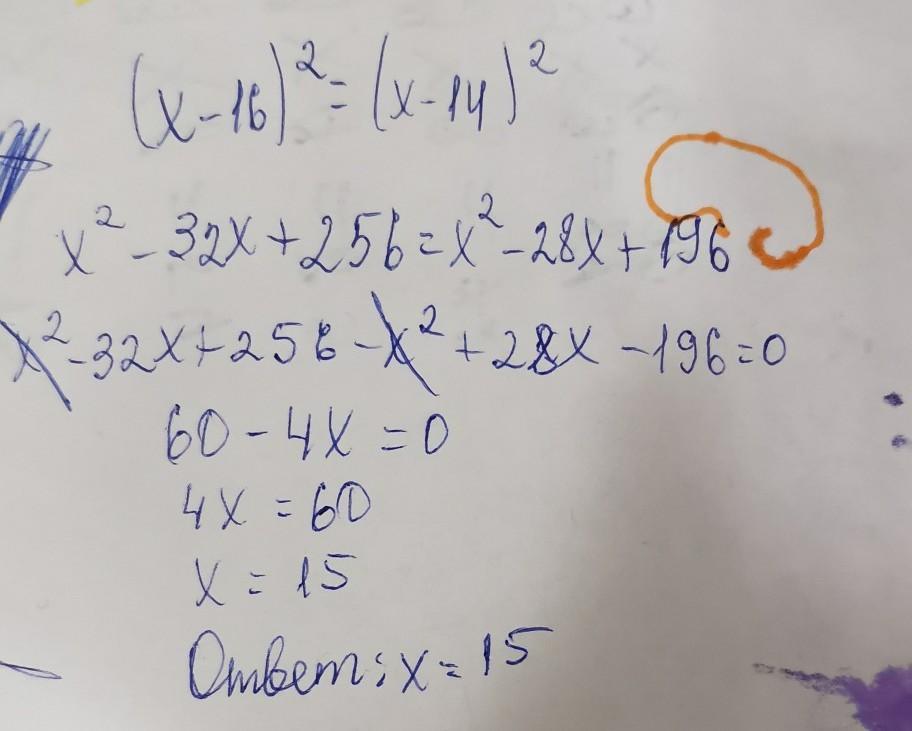 (x-16)² = (x-14)²
x² - 32x + 256 = x² - 28x + 196
x² - 32x + 256 - x² + 28x - 196 = 0
60 - 4x = 0
4x = 60
x = 15
Ответ: x = 15